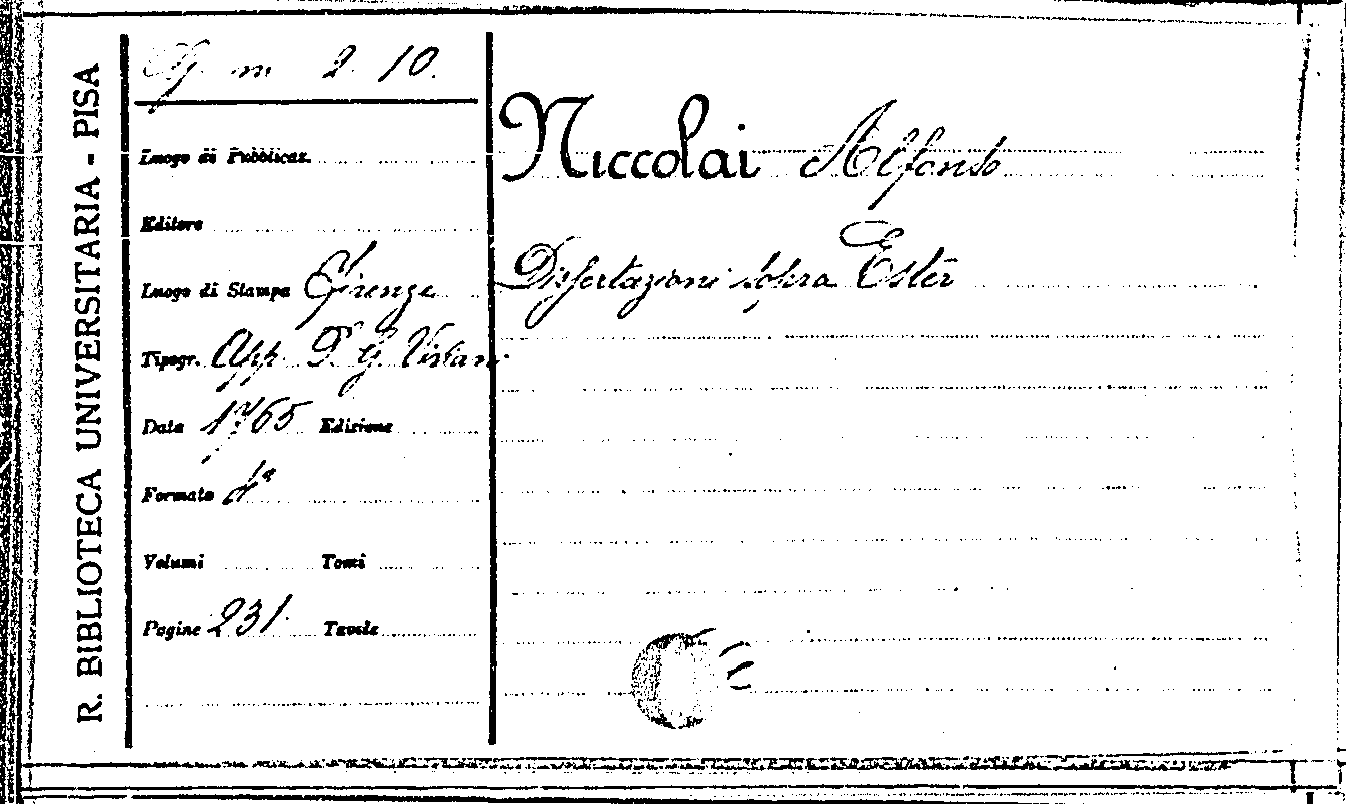 R. BIBLIOTECA UNIVERSITARIA - PISA
m 2. 10.
Luogo di Pubblicaz.
Editore
Luogo di Stampa Firenze
Tipogr. App. G.
Data 1765 Edizione
Formato 4°
Volumi Tomi
Pagine 231. Tavole
Niccolai Alfonso
Dissertazioni sopra Ester